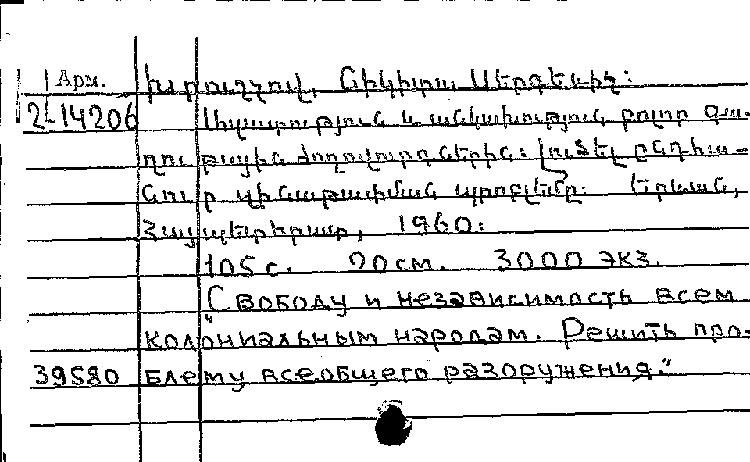 Арм. Խրուշչով, Նիկիտա Սերգեևիչ:
2-14206 Ազատություն և անկախություն բոլոր գա-
ղութային ժողովուրդներին: Լուծել ընդհա-
նուր զինաթափման պրոբլեմը: Երևան,
Հայպետհրատ, 1960:
105 с. 20 см. 3000 экз.
"Свободу и независимость всем
колониальным народам. Решить про-
39580 блему всеобщего разоружения."